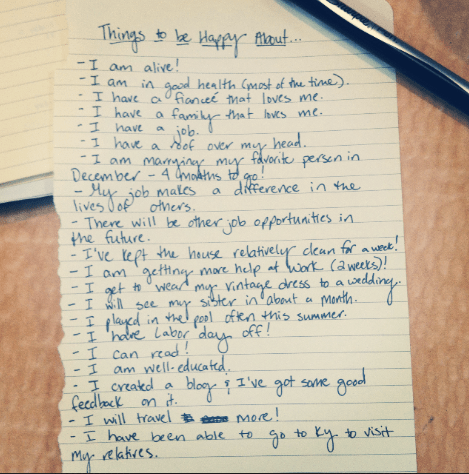 Things to be Happy About...
- I am alive!
- I am in good health (most of the time).
- I have a fianceé that loves me.
- I have a family that loves me.
- I have a job.
- I have a roof over my head.
- I am marrying my favorite person in
December - 4 months to go!
- My job makes a difference in the
lives of others.
- There will be other job opportunities in
the future.
- I've kept the house relatively clean for a week!
- I am getting more help at work (2 weeks)!
- I get to wear my vintage dress to a wedding.
- I will see my sister in about a month.
- I played in the pool often this summer.
- I have Labor day off!
- I can read!
- I am well-educated.
- I created a blog & I've got some good
feedback on it.
- I will travel more!
- I have been able to go to Ky to visit
my relatives.